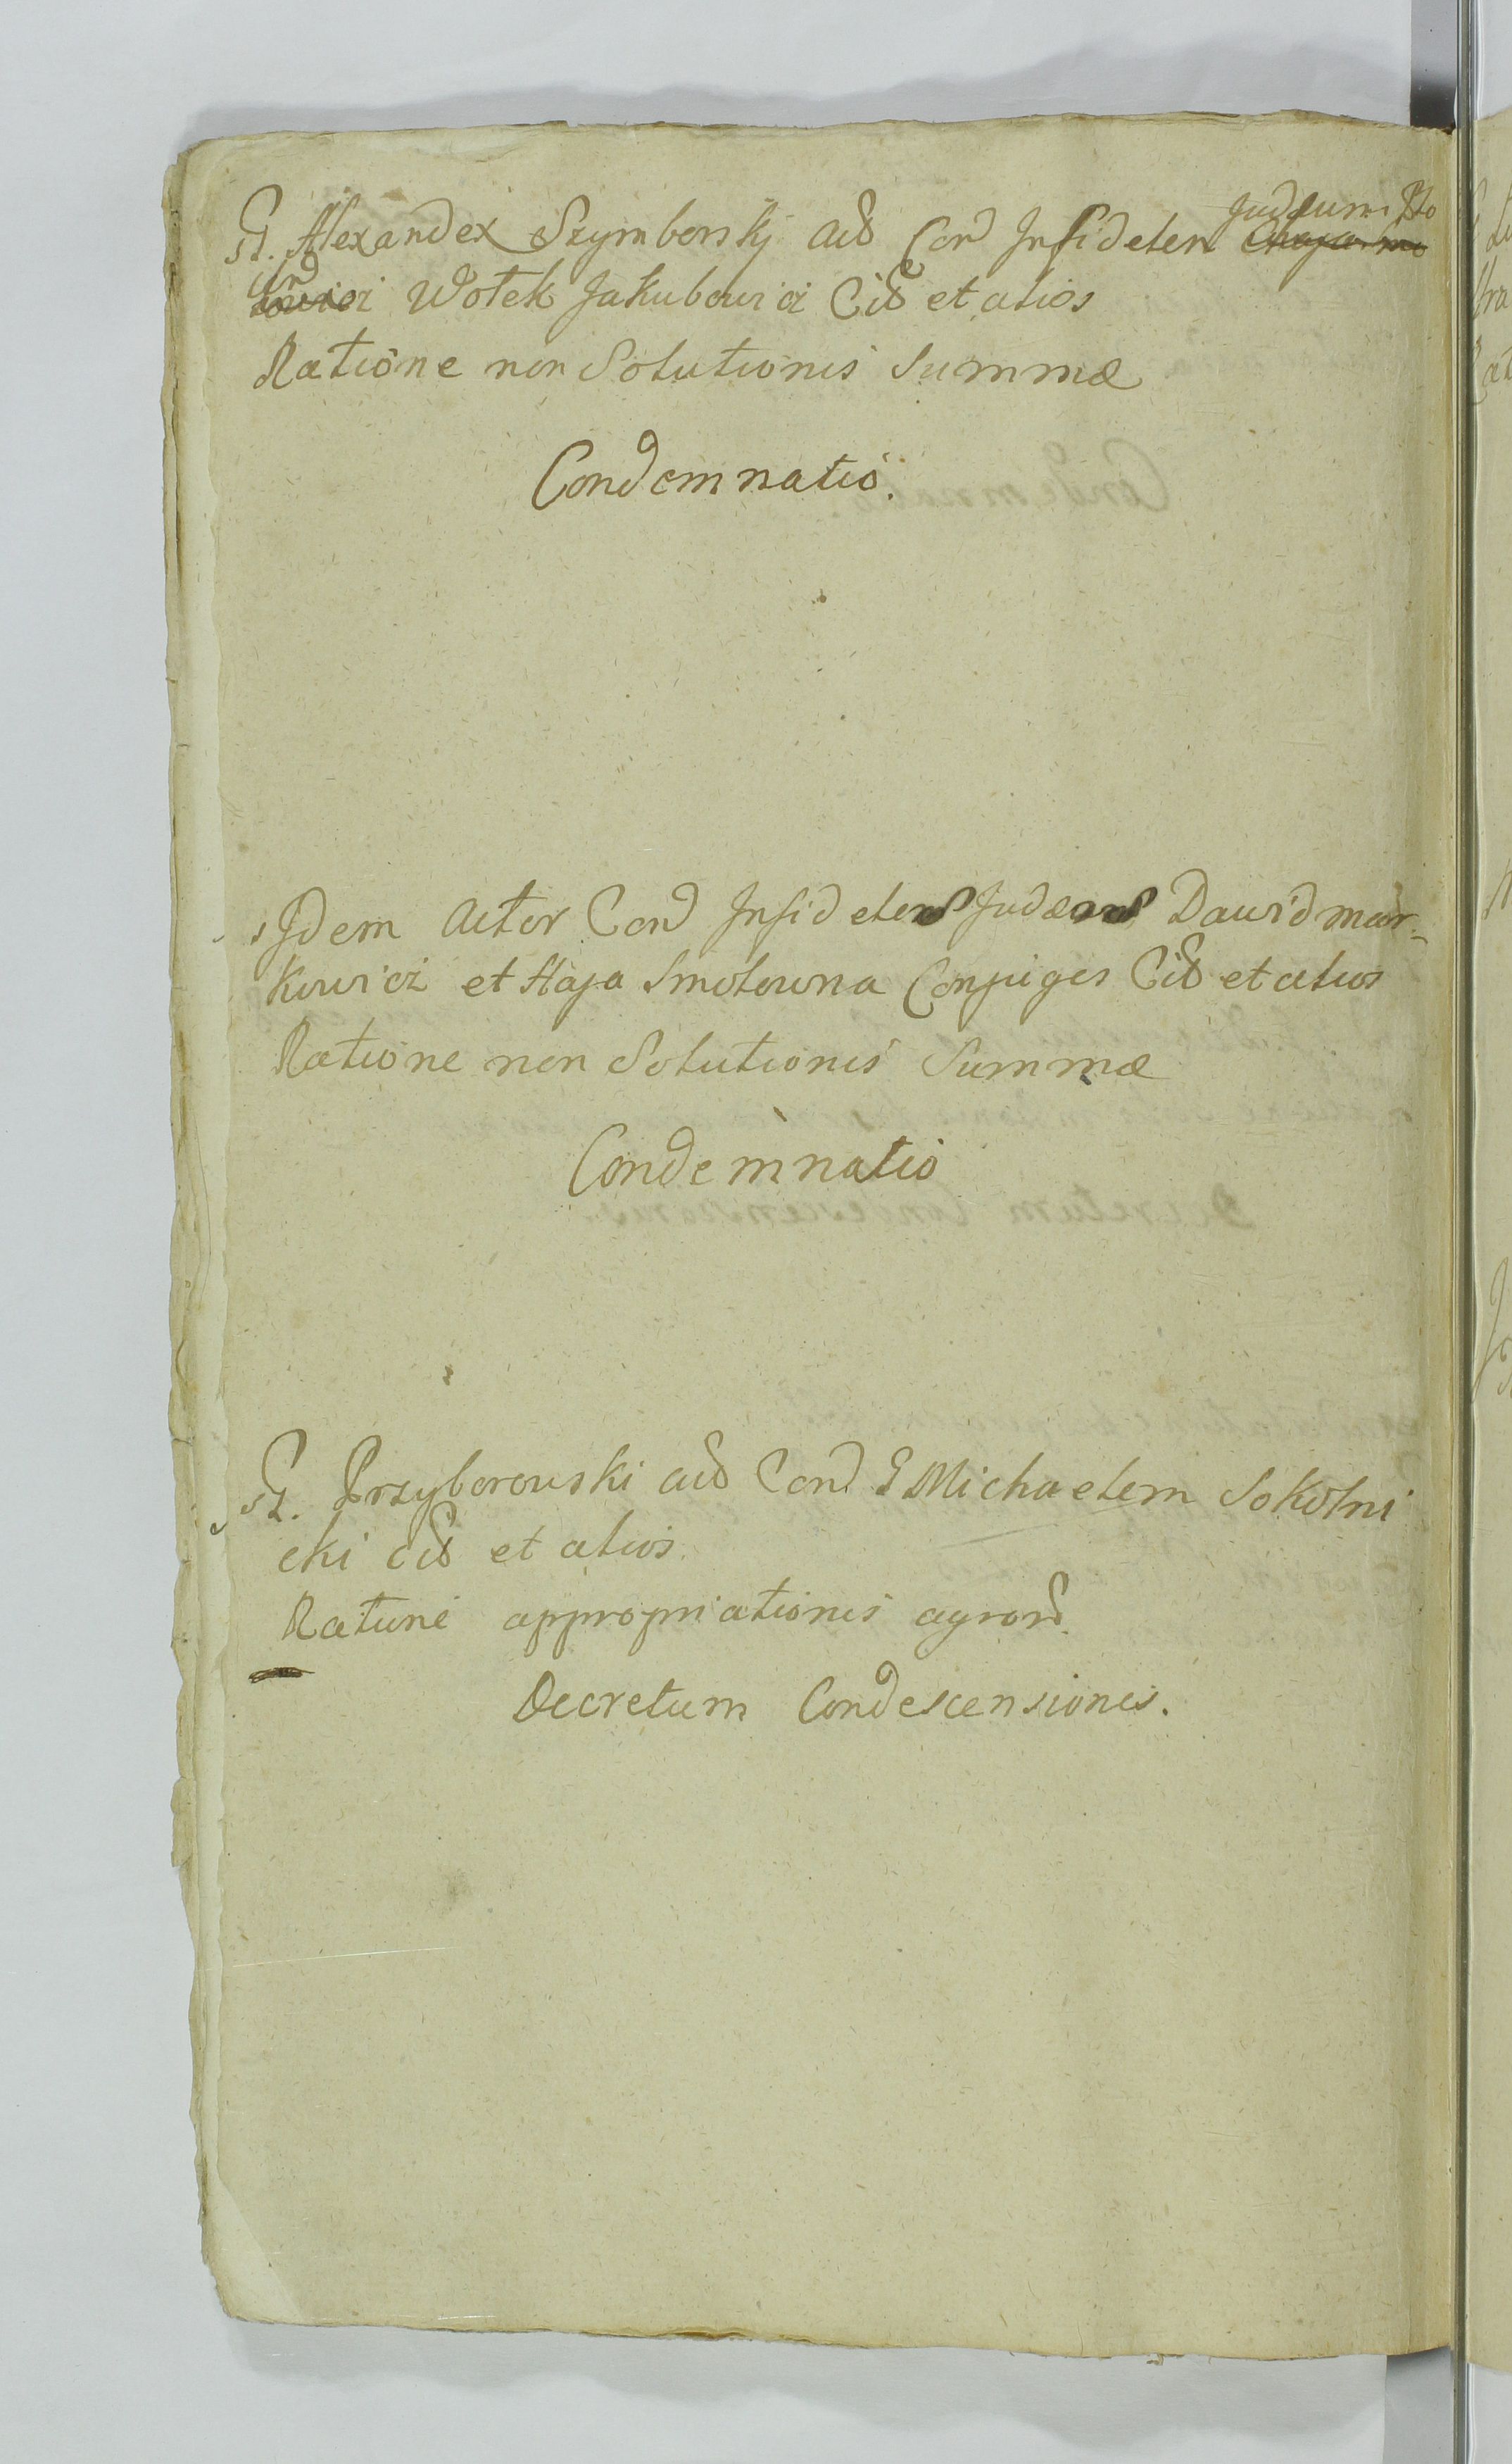 G. Alexander Szymborskj Act Con Infidelem Judæum
Wolek Jakubowicz Cit et alios
Ratione non Solutionis Summæ
Condemnatio.
Idem Actor Con Infideles Judæos Dawid Mar-
kowicz et Haja Smolowna Conjuges Cit et alios
Ratione non Solutionis Summæ
Condemnatio
G. Przyborowski Act Con G Michaelem Sokolni
cki Cit et alios
Ratione appropriationis agror
Decretum Condescensionis.